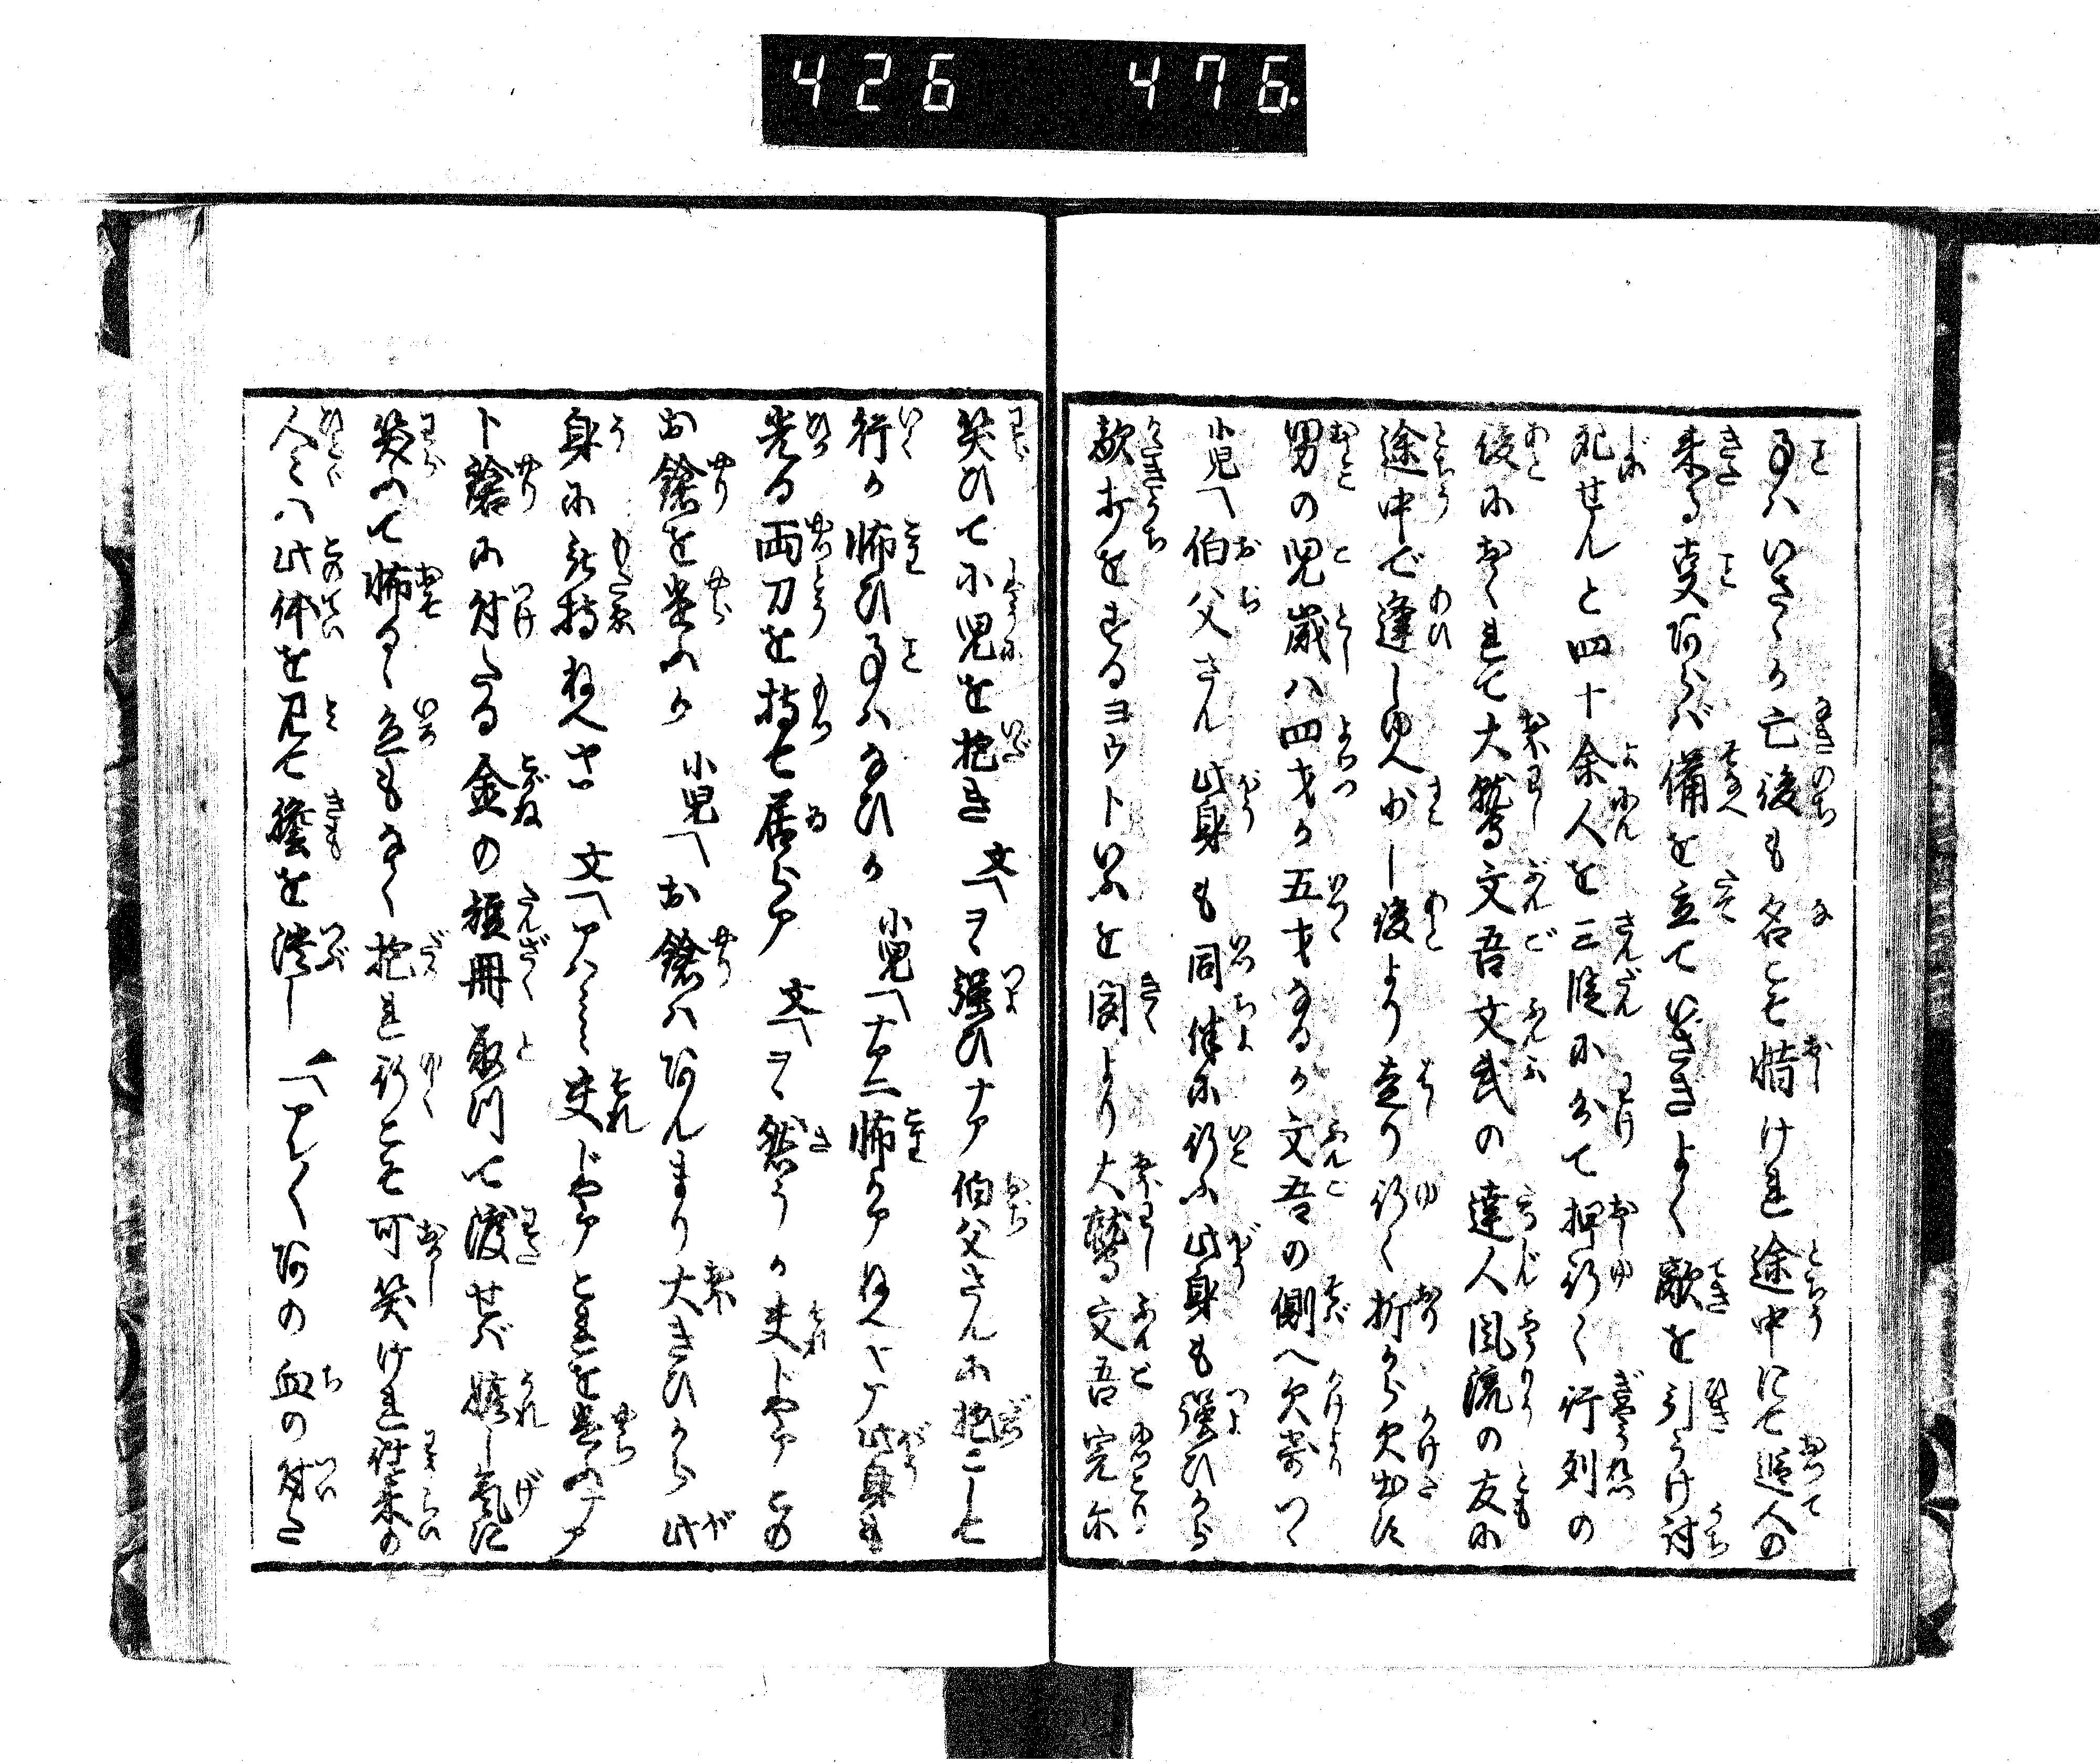 426 476.
事ハいさゝか亡後も名こそ惜けれ途中にて追人の
来る事あらバ備を立ていさぎよく敵を引うけ討
死せんと四十余人を三段に分て押行く行列の
後におくれて大鷲文吾文武の達人風流の友に
途中で逢しゆへ少し後より走り行く折から欠出す
男の児歳ハ四才か五才なるが文吾の側へ欠寄つゝ
小児〽伯父さん此身も同伴に行ふ此身も強ひから
敵打をするヨウトいふを聞より大鷲文吾完尓
笑ひて小児を抱き 文〽ヲヽ強ひナア伯父さんに抱こして
行か怖ひ事ハないか 小児〽ナアニ怖かアねへヤア此身も
光る両刀を持て居らア 文〽ヲヽ然うか夫じやアこの
お鎗を遣ふか 小児〽お鎗ハあんまり大きひから此
身に持ねへヤ 文〽アハヽヽ夫じやアこれを遣ふナア
ト鎗に付たる金の短冊取つて渡せば嬉し気に
笑ふて怖るゝ色もなく抱れ行こそ可笑けれ往来の
人々ハ此体を見て膽を潰し 「〽アレ〳〵あの血の付た